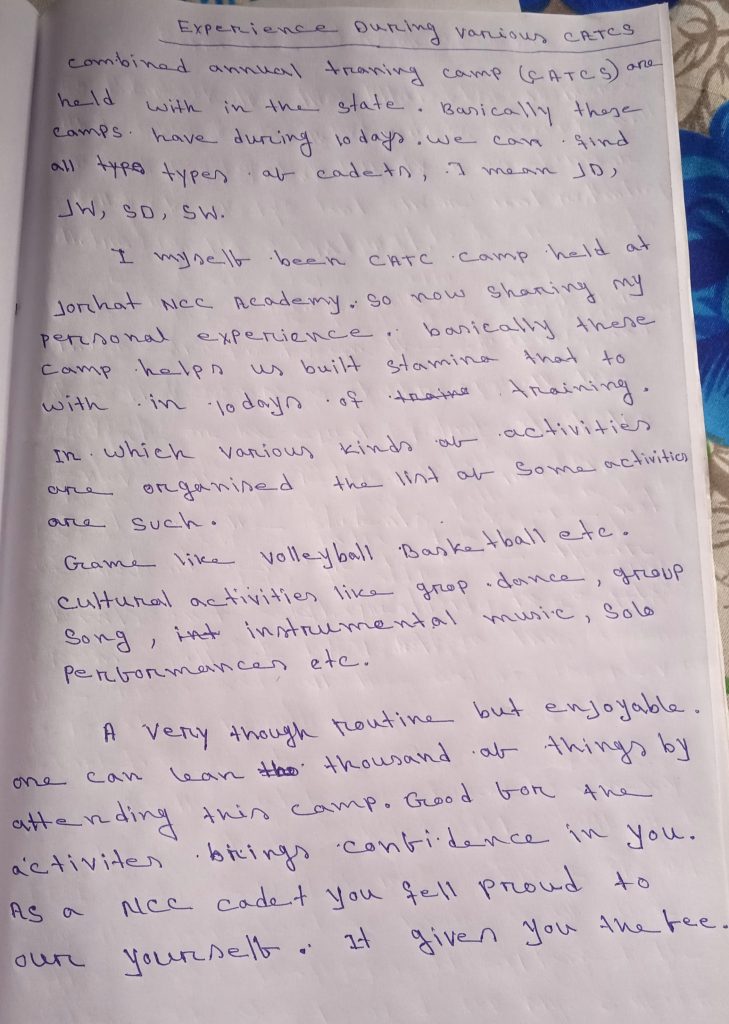 Experience During various CATCS
combined annual traning camp (CATCS) are
held with in the state. Basically these
camps have during 10 days. we can find
all type types of cadets, I mean JD,
JW, SD, SW.
I myself been CATC camp held at
Jorhat NCC Academy. so now sharing my
personal experience. basically these
camp helps us built stamina that to
with in 10 days of traine training.
In which various kinds of activities
are organised the list of some activities
are such.
Game like volleyball Basketball etc.
cultural activities like grop dance, group
song, int instrumental music, solo
performances etc.
A very though routine but enjoyable.
one can lean tho thousand of things by
attending this camp. Good for the
activites brings confidence in you.
As a NCC cadet you fell proud to
our yourself. It gives you the fee.